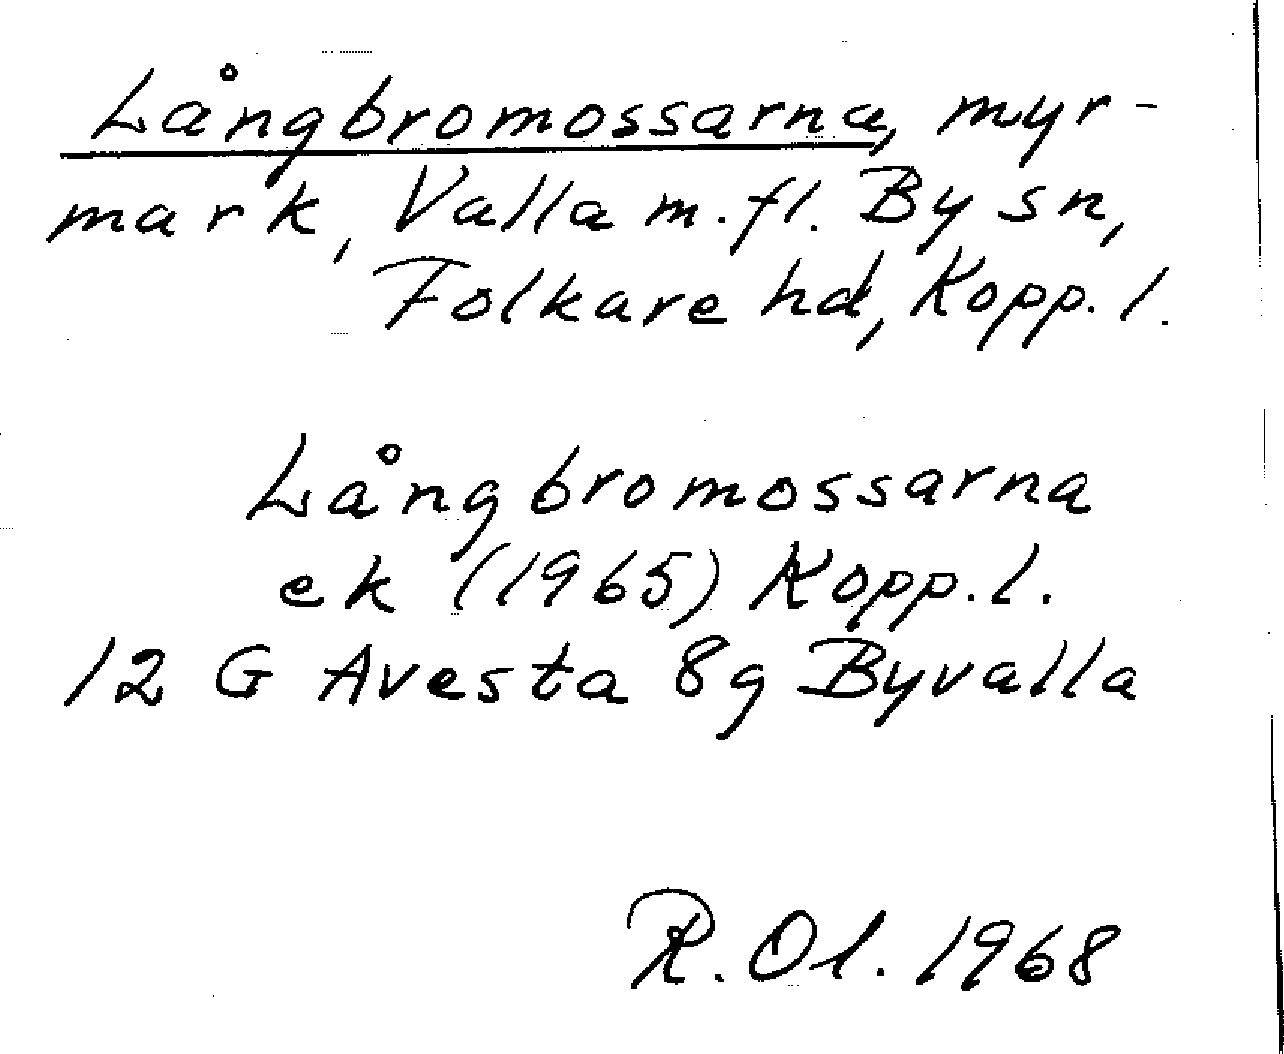 Långbromossarna, myr-
mark, Valla m.fl. By sn,
Folkare hd, Kopp. l.
Långbromossarna
ek (1965) Kopp. l.
12 G Avesta 8g Byvalla
R. Ol. 1968